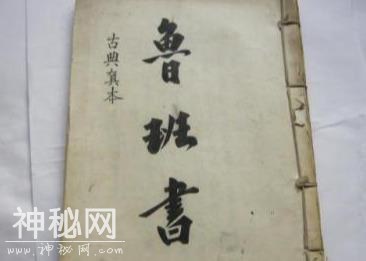 魯班書
古典真本
神秘网
www.神秘网.com